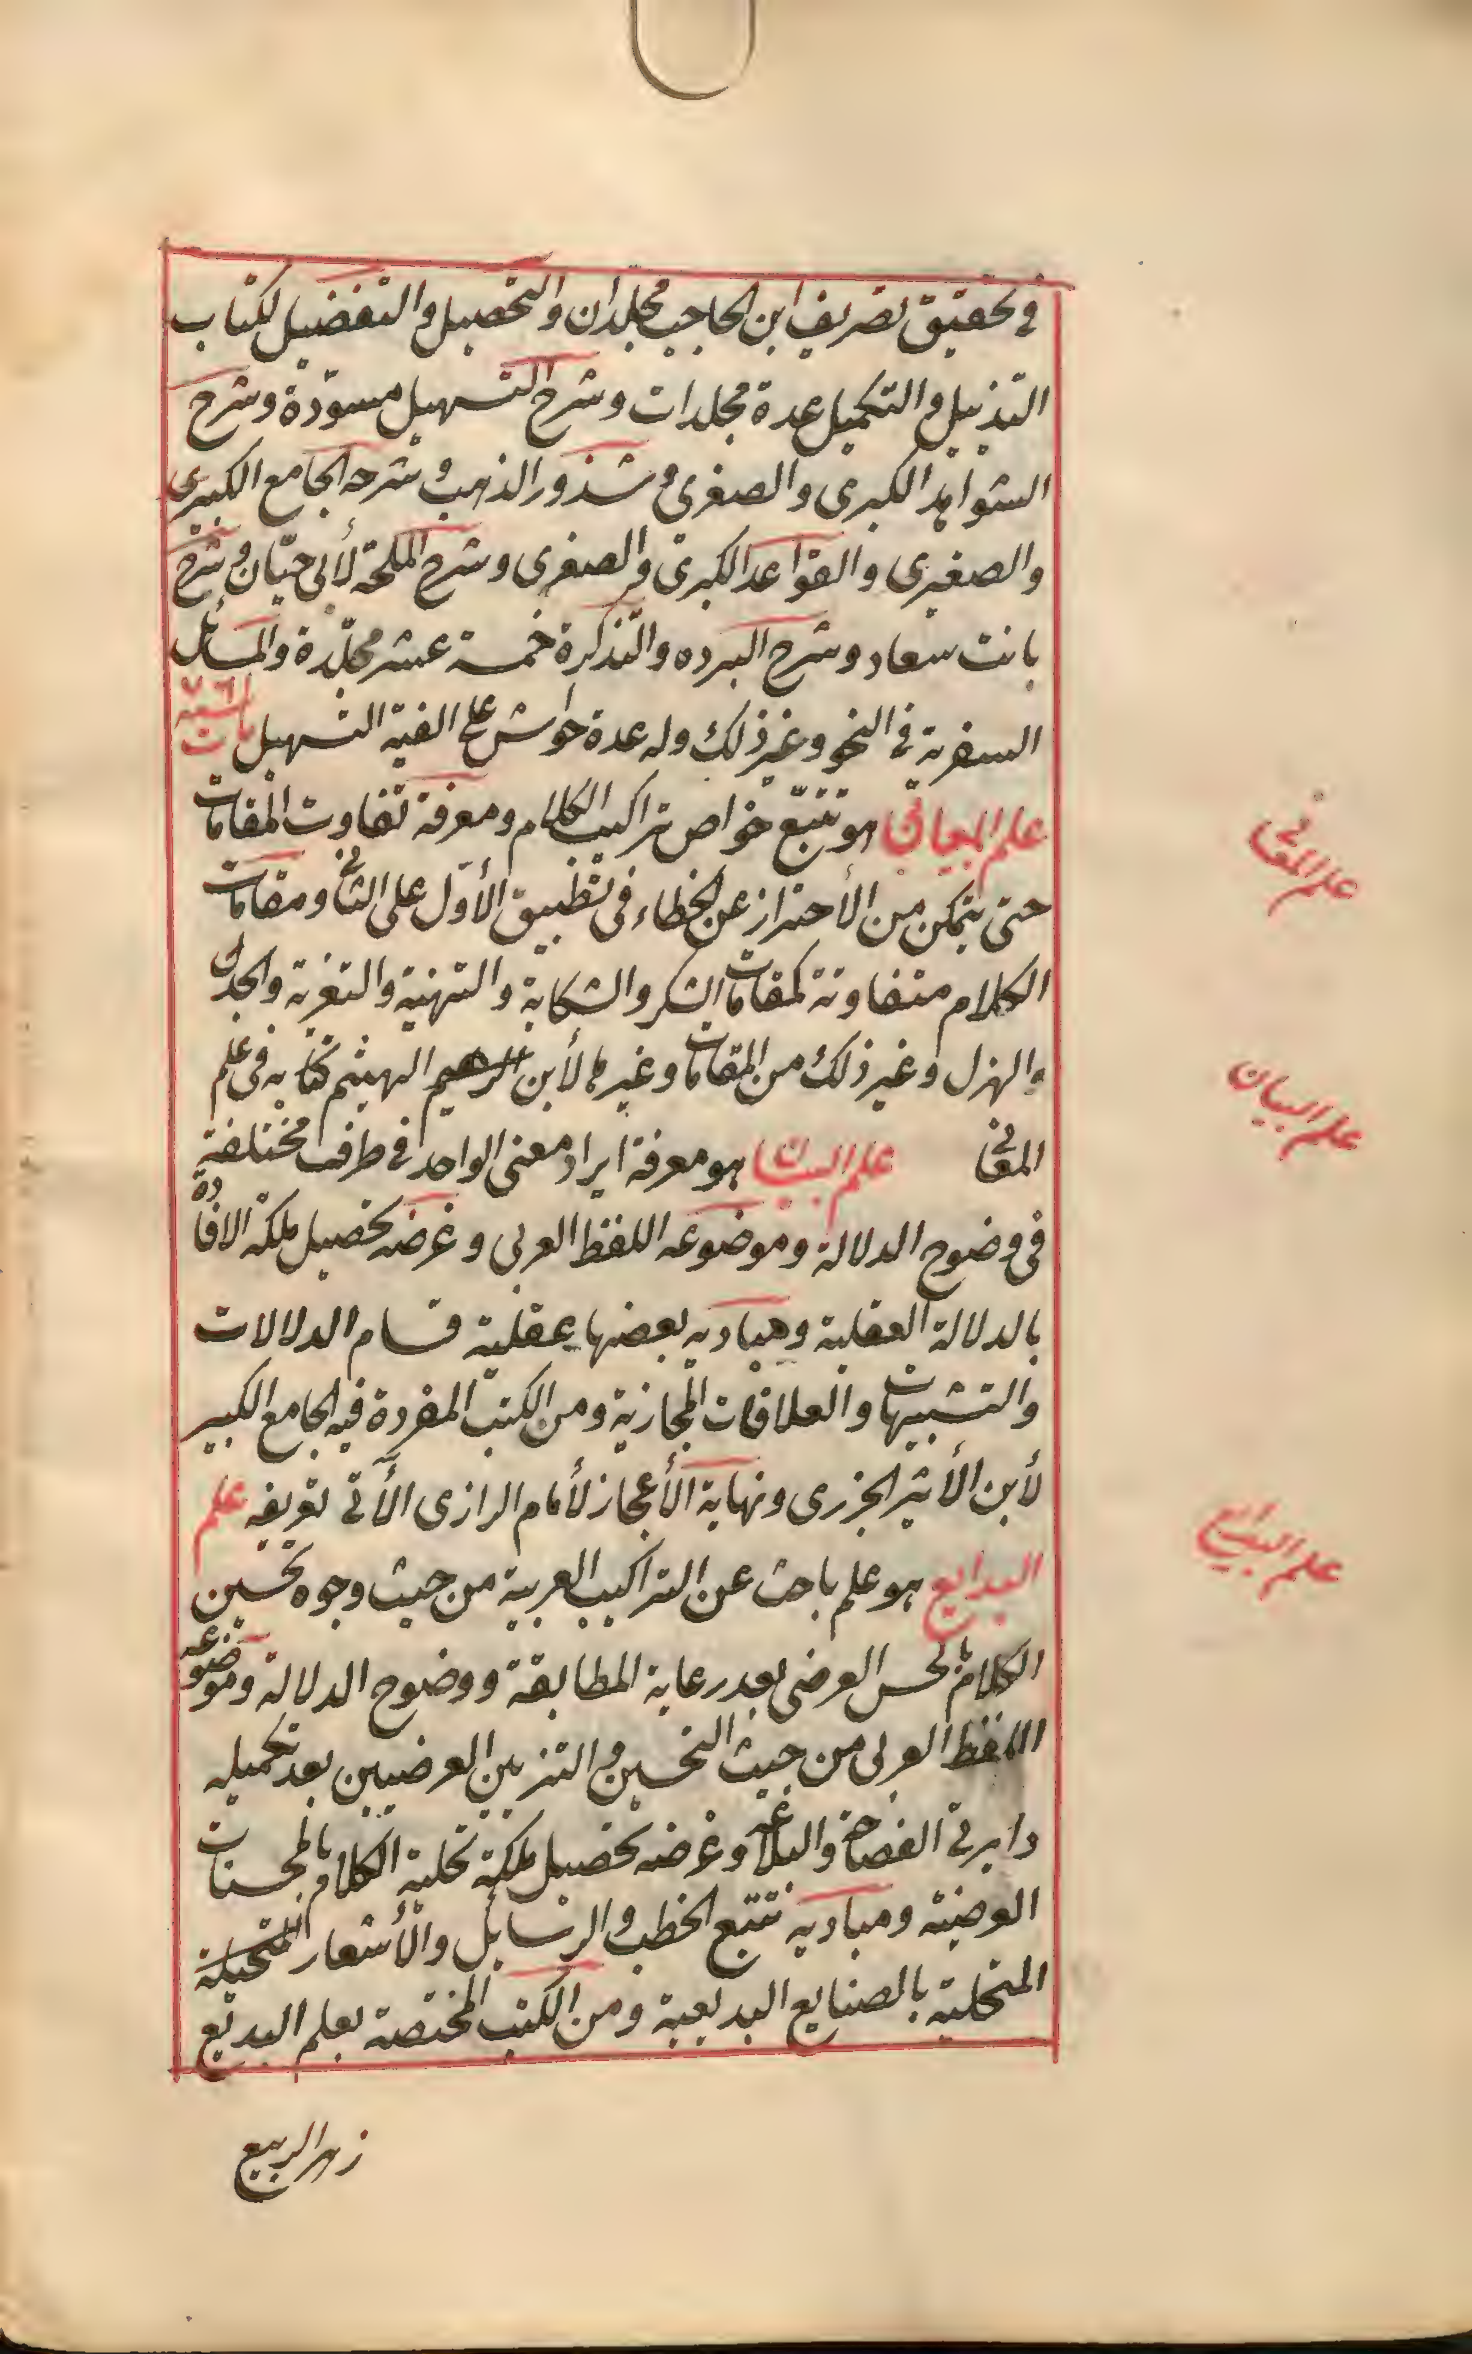 في تحقيق تصريف ابن الحاجب مجلدان والتحصيل والتفضيل لكتاب
التذييل والتكميل عدة مجلدات وشرح التسهيل مسوّدة وشرح
الشواهد الكبرى والصغرى و شذور الذهب و شرحه الجامع الكبيرى
والصغيرى والقواعد الكبرى والصغرى وشرح الملحة لأبي حيّان وشرح
بانت سعاد وشرح البرده والتذكرة خمسة عشر مجلّدة والمسائل
السفرية في النحو وغير ذلك وله عدة حواش على الفية التسهيل مات سنة ٧٦١
علم المعاني هو تتبّع خواص تراكيب الكلام ومعرفة تفاوت المقامات
حتى يتمكن من الأحتراز عن الخطاء في تطبيق الأوّل على الثاني ومقامات
الكلام متفاوتة كمقامات الشكر والشكاية والتهنية والتعزية والجدل
والهزل وغير ذلك من المقامات وغيرها لأبن الهيثم كتابه في علم
المعاني علم البيان هو معرفة ايراد معنى الواحد في طرف مختلفة
في وضوح الدلالة وموضوعه اللفظ العربي وغرضه تحصيل ملكة الافادة
بالدلالة العقلية ومباديه بعضها عقلية قسام الدلالات
والتشبيهات والعلاقات المجازية ومن الكتب المفردة فيه الجامع الكبير
لأبن الأثير الجزرى ونهاية الأعجاز لأمام الرازى الأتي تعريفه علم
البدايع هو علم باحث عن التراكيب العربية من حيث وجوه تحسين
الكلام بالحس العرضي بعد رعاية المطابقة ووضوح الدلالة وموضوعه
اللفظ العربي من حيث التحسين والتزيين العرضيين بعد تكميله
دايرتي الفصاحة والبلاغة وغرضه تحصيل ملكة تحلية الكلام بالمحسنات
العرضية ومباديه تتبع الخطب والرسايل والأشعار المتحيلة
المتحلية بالصنايع البديعية ومن الكتب المختصة بعلم البديع
زهر الربيع
علم المعاني
علم البيان
علم البدايع